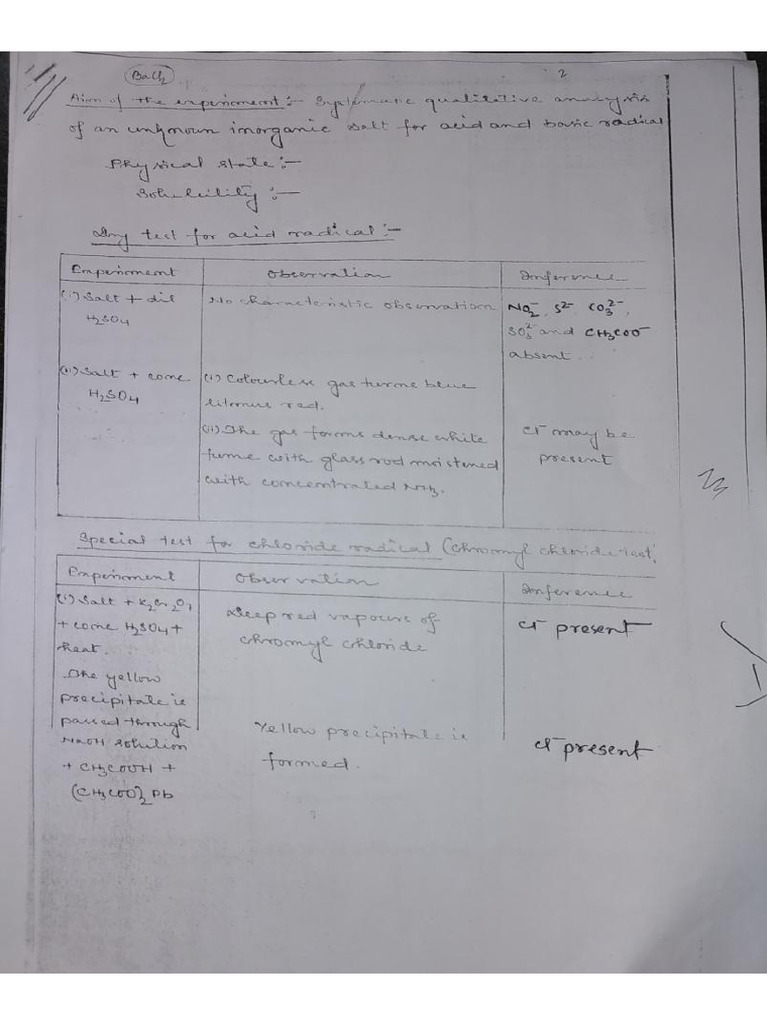 BaCl2
2
Aim of the experiment:- Systematic qualitative analysis
of an unknown inorganic salt for acid and basic radical
Physical state:-
Solubility:-
Dry test for acid radical:-
Experiment
Observation
Inference
(i) Salt + dil
H2SO4
No characteristic observation
NO2-, S2- CO3 2-,
SO3 2- and CH3COO-
absent.
(ii) Salt + conc
H2SO4
(i) Colourless gas turns blue
litmus red.
(ii) The gas forms dense white
fume with glass rod moistened
with concentrated NH3.
Cl- may be
present
Special test for chloride radical (chromyl chloride test)
Experiment
Observation
Inference
(i) Salt + K2Cr2O7
+ conc H2SO4 +
heat.
Deep red vapours of
chromyl chloride
Cl- present
The yellow
precipitate is
passed through
NaOH solution
+ CH3COOH +
(CH3COO)2 Pb
Yellow precipitate is
formed.
Cl- present